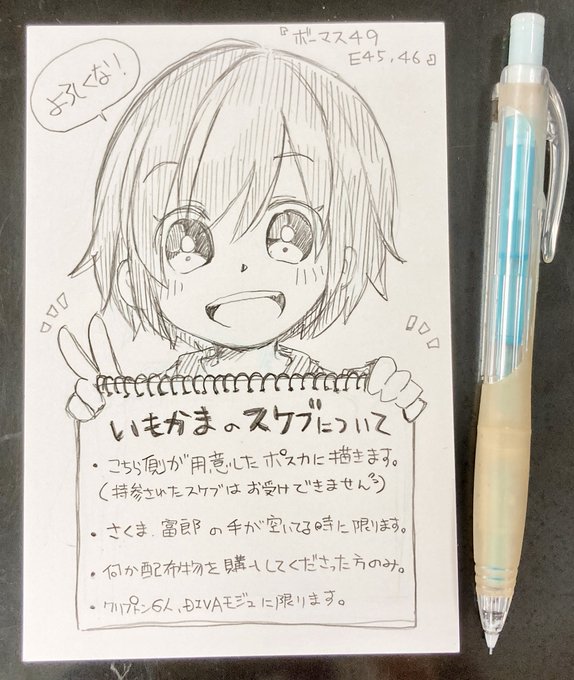 『ボーマス49
E45,46』
よろしくな!
いもかまのスケブについて
・こちら側が用意したポスカに描きます。
(持参されたスケブはお受けできません💦)
・さくま.富郎の手が空いてる時に限ります。
・何か配布物を購入してくださった方のみ。
・クリプトン6人、DIVAモジュに限ります。